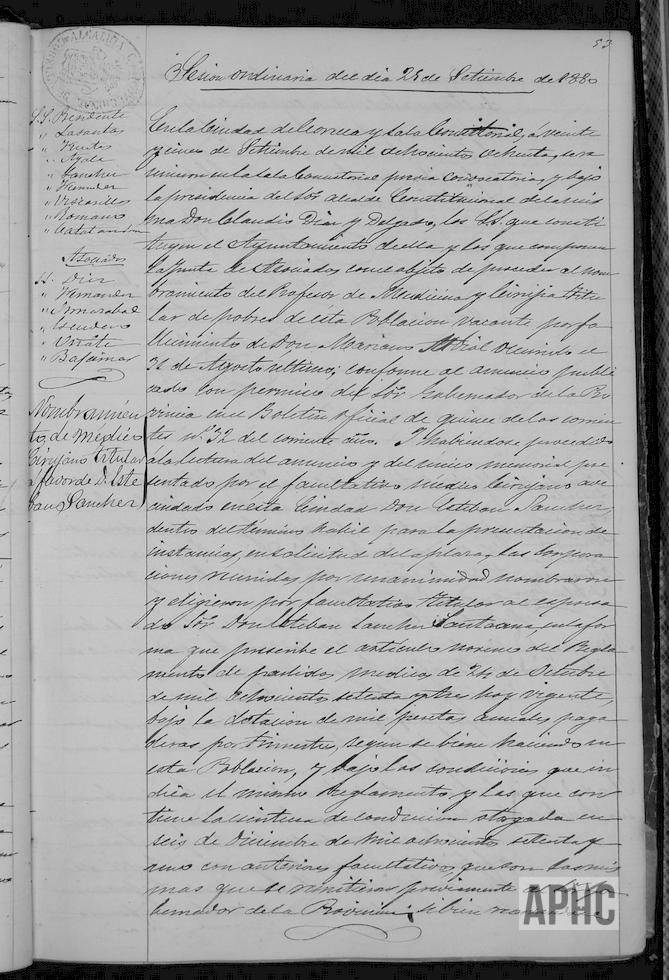 53
Sesion ordinaria del dia 25 de Setiembre de 1880
S.S. Presidente
" Lasanta
" Frutos
" Ayala
" Sancher
" Romano
Asociados
S.S. Diez
" Fernander
" Escudero
" Oñate
" Bajamar
Nombramien
to de médico
Cirujano titular
a favor de D. Este
ban Sancher
En la Ciudad de Corella y Sala Consistorial, a veinte
y cinco de Setiembre de mil ochocientos ochenta,
previa convocatoria, y bajo
la presidencia del Sor. Alcalde Constitucional de la mis
ma Don Claudio Diaz y Delgado, los SS. que consti
tuyen el Ayuntamiento de ella y los que componen
la Junta de Asociados, con el objeto de proceder al nom
bramiento del Profesor de Medicina y Cirujia titu
lar de pobres de esta Poblacion vacante por fa
llecimiento de Don Mariano Vidal ocurrido el
31 de Agosto ultimo; conforme al anuncio publi
cado con permiso del Sor. Gobernador de la Pro
vincia en el Boletin oficial de quince de los corrien
tes nº 32 del corriente año. Y habiendose procedido
a la lectura del anuncio y del único memorial pre
sentado por el facultativo medico Cirujano ave
cindado en ésta Ciudad Don Esteban Sancher,
dentro del termino habil para la presentacion de
instancias, en solicitud de la plaza, las Corpora
ciones reunidas por unanimidad nombraron
y eligieron por facultativo titular al espresa
do Sor. Don Esteban Sancher Santaana, en la for
ma que prescribe el articulo noveno del Regla
mento de partidos medicos de 24 de Octubre
de mil ochocientos setenta y tres hoy vigente,
bajo la dotacion de mil pesetas anuales paga
deras por trimestres, segun se biene haciendo en
esta Poblacion, y bajo las condiciones que in
dica el mismo Reglamento y las que con
tiene la escritura de conducion otorgada en
seis de Diciembre de mil ochocientos setenta y
uno con anteriores facultativos que son las mis
mas que se remitieron previamente al Go
bernador de la Provincia; si bien
APHC